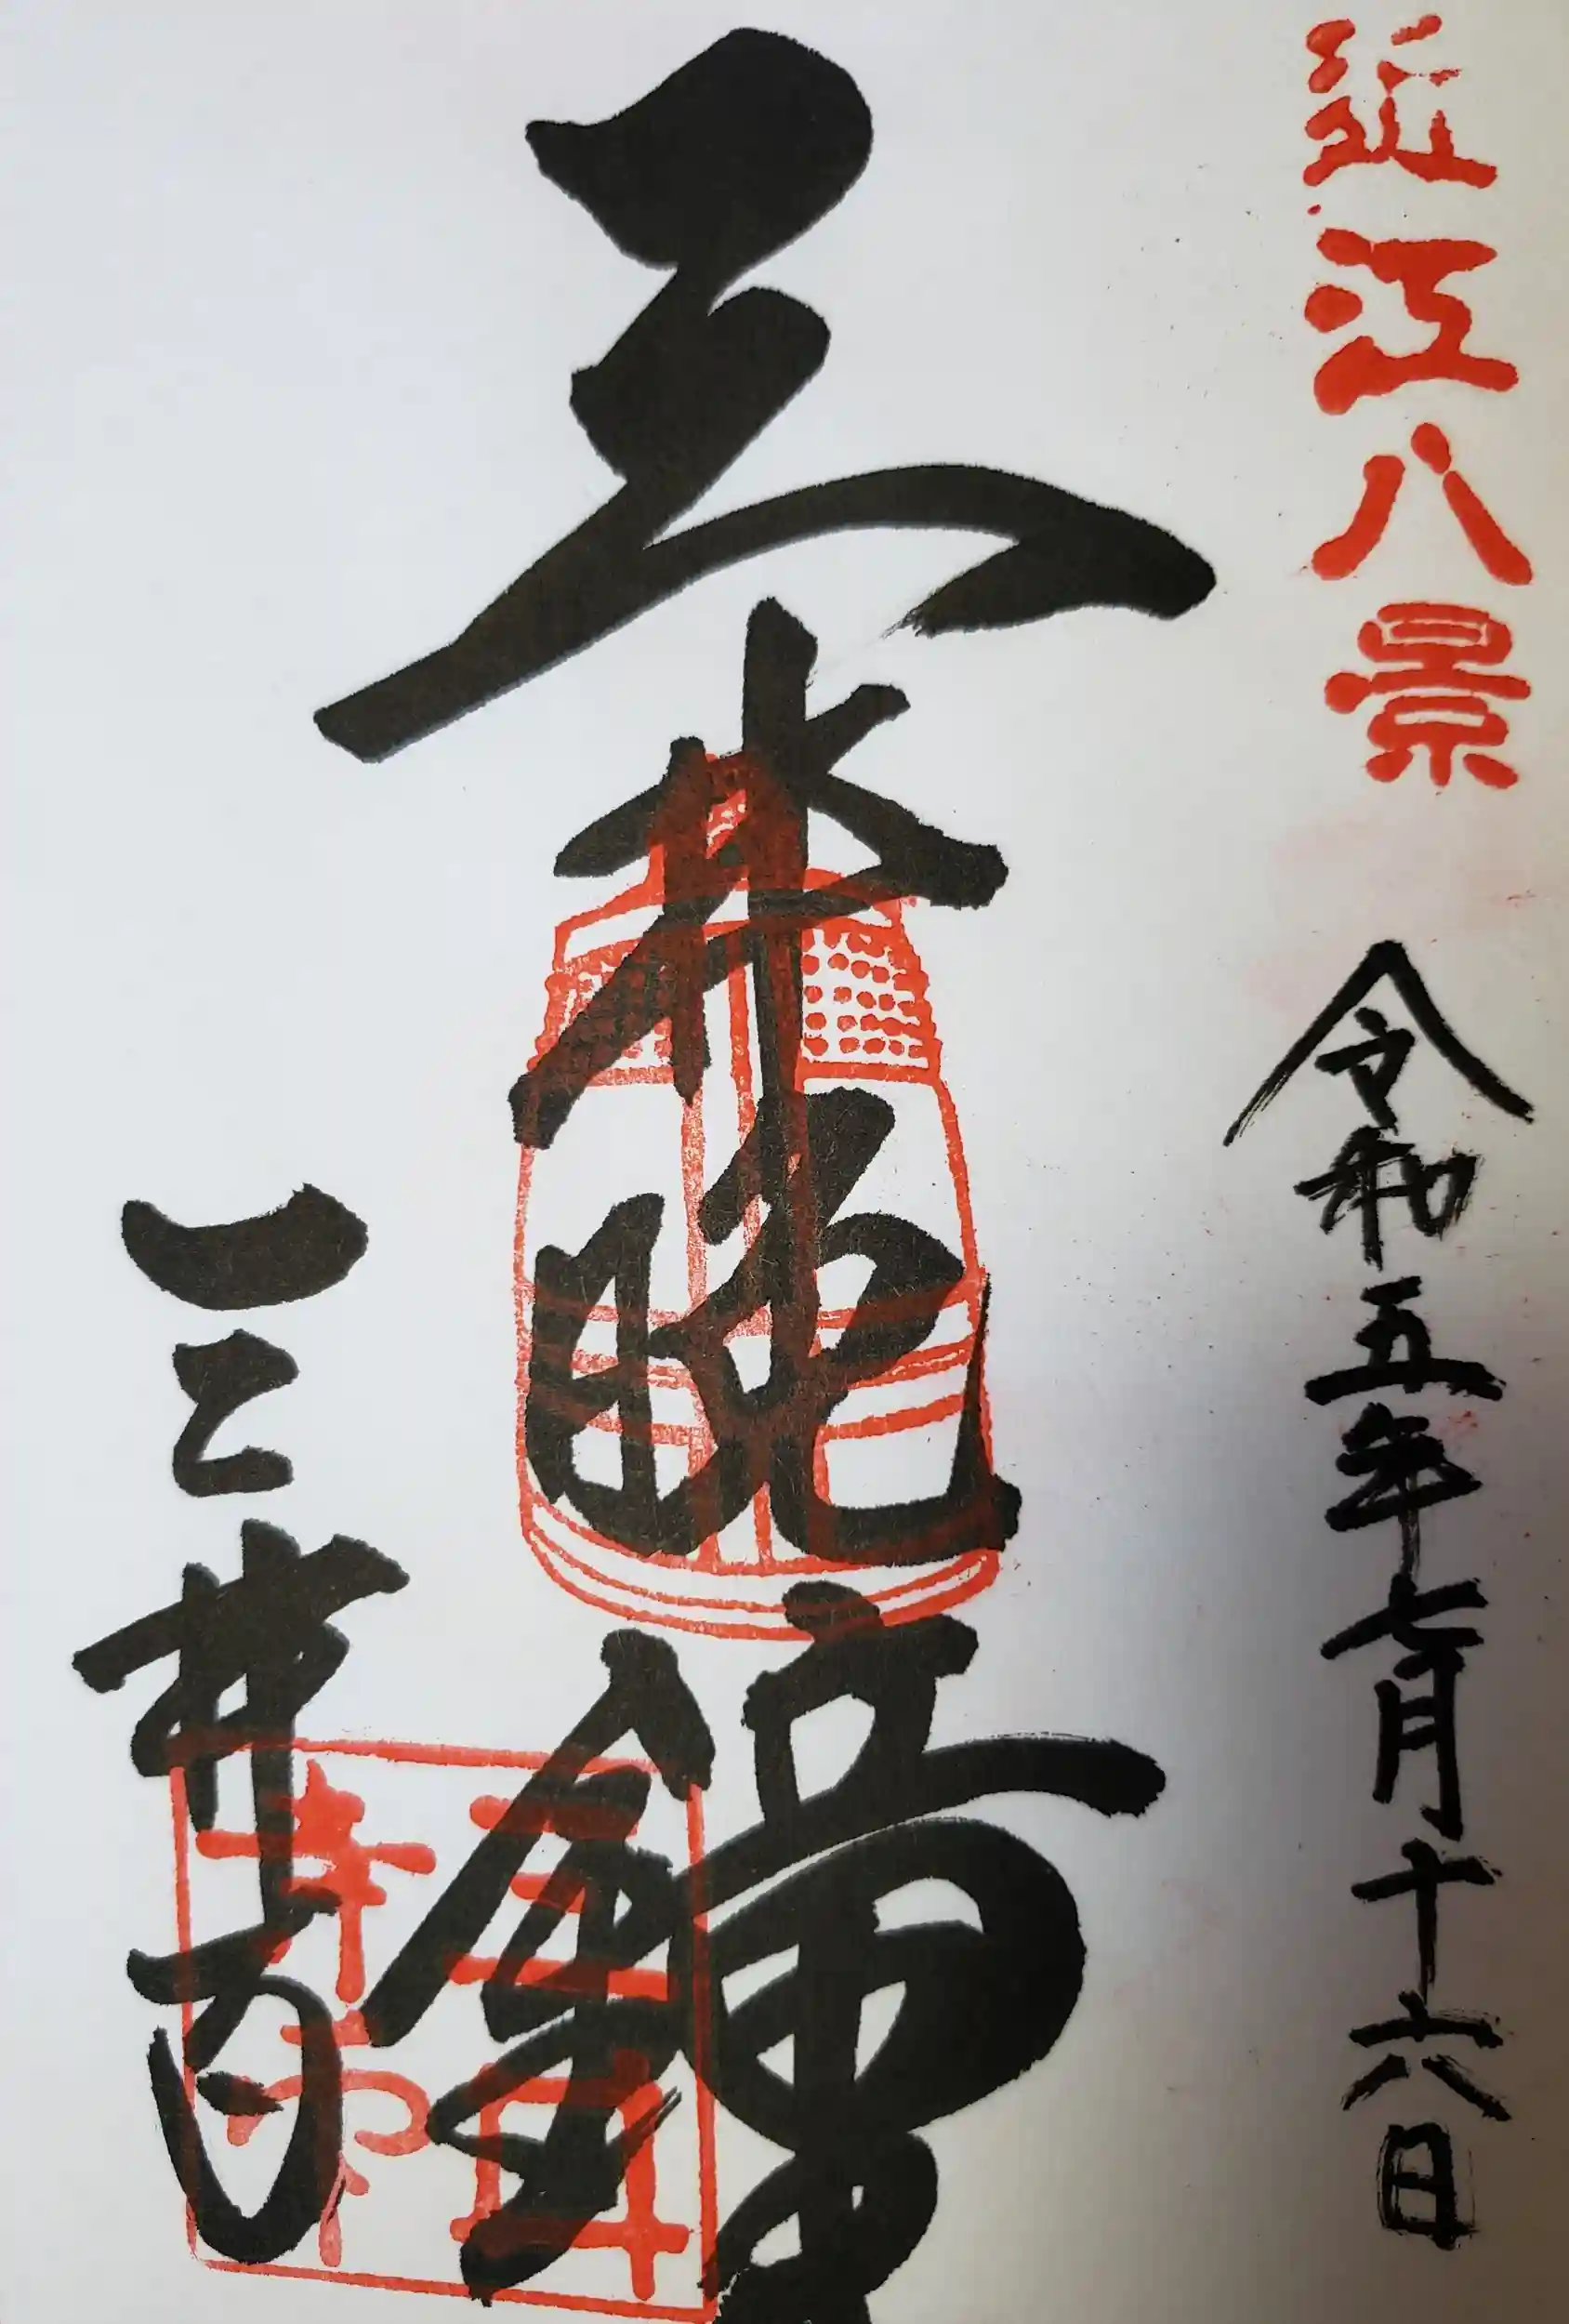 近江八景
令和五年七月十六日
三井晩鐘
三井寺
三井寺印